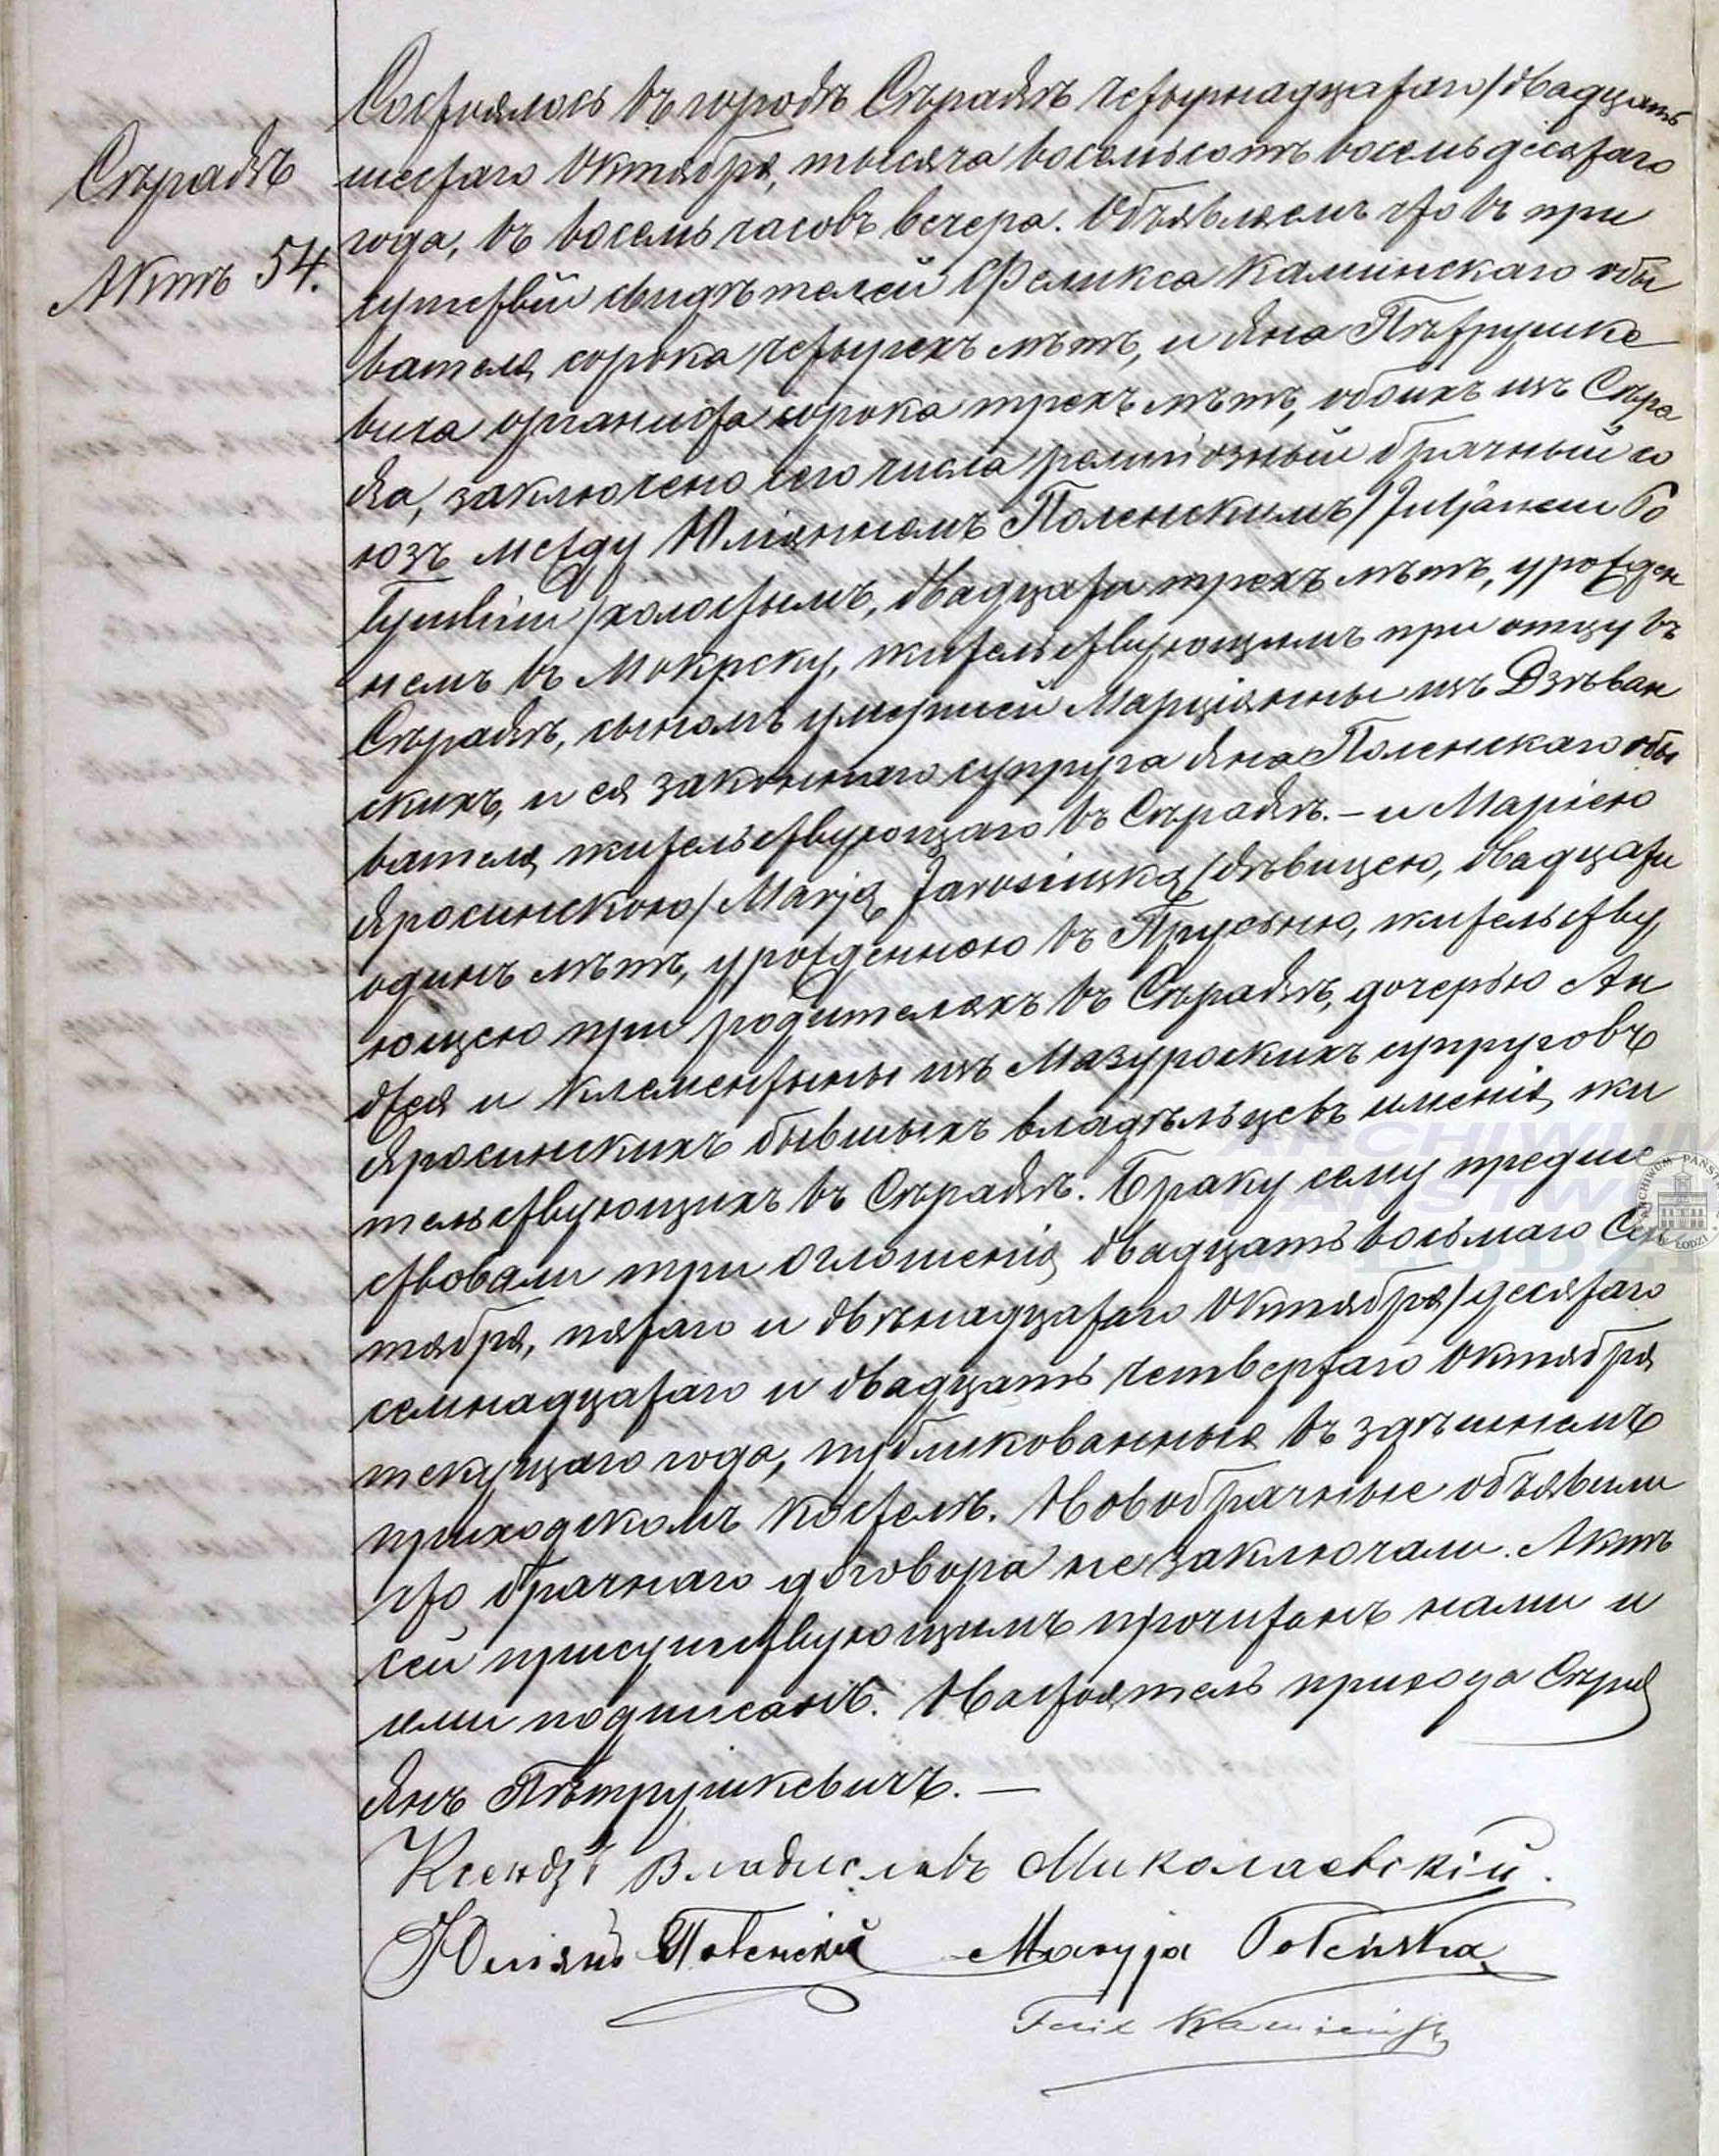 Сѣрадзъ
Актъ 54.
Состоялось въ городѣ Сѣрадзѣ четырнадцатаго/двадцать
шестаго Октября, тысяча восемьсотъ восемьдесятаго
года, въ восемь часовъ вечера. Объявляемъ что въ при
сутствіи свидѣтелей Феликса Каминскаго обы
вателя сорока четырехъ лѣтъ, и Яна Пѣтрушке
вича органиста сорока трехъ лѣтъ, обоихъ изъ Сѣра
дза, заключено сего числа религіозный брачный со
юзъ между Юліяномъ Поленскимъ/Juljanem Po
leńskim/холостымъ, двадцати трехъ лѣтъ, урожден
немъ въ Мокрску, жительствующимъ при отцу въ
Сѣрадзѣ, сыномъ умершей Марціянны изъ Дзѣван
скихъ, и ея законнаго супруга Яна Поленскаго обы
вателя жительствующаго въ Сѣрадзѣ. – и Маріею
Яросинскою/Marją Jarosińską/дѣвицею, двадцати
одинъ лѣтъ, урожденною въ Прусыню, жительству
ющею при родителяхъ въ Сѣрадзѣ, дочерью Ан
држея и Клементыны изъ Мазуроскихъ супруговъ
Яросинскихъ бывшыхъ владѣльцевъ именія жи
тельствующихъ въ Сѣрадзѣ. Браку сему предше
ствовали три оглошенія двадцать восьмаго Сен
тября, пятаго и двѣнадцатаго Октября/десятаго
семнадцатаго и двадцать четвертаго Октября
текущаго года, публикованныя въ здѣшнемъ
приходскомъ костелѣ. Новобрачные объявили
что брачнаго договора не заключали. Актъ
сей присутствующимъ прочитанъ нами и
ими подписанъ. Настоятель прихода Сѣрадз
Янъ Пѣтрушкевичъ. —
Ксендзъ Владиславъ Миколаевскій.
Юліянъ Поленскій Maryja Poleńska
Felix Kamiński
ARCHIWUM
PAŃSTWOWE
W ŁODZI